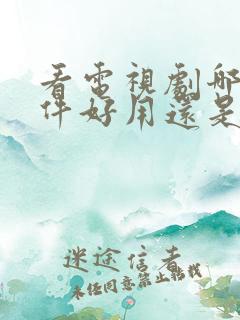 看電視劇哪
件好用還是
迷途信者
未经同意禁止转载